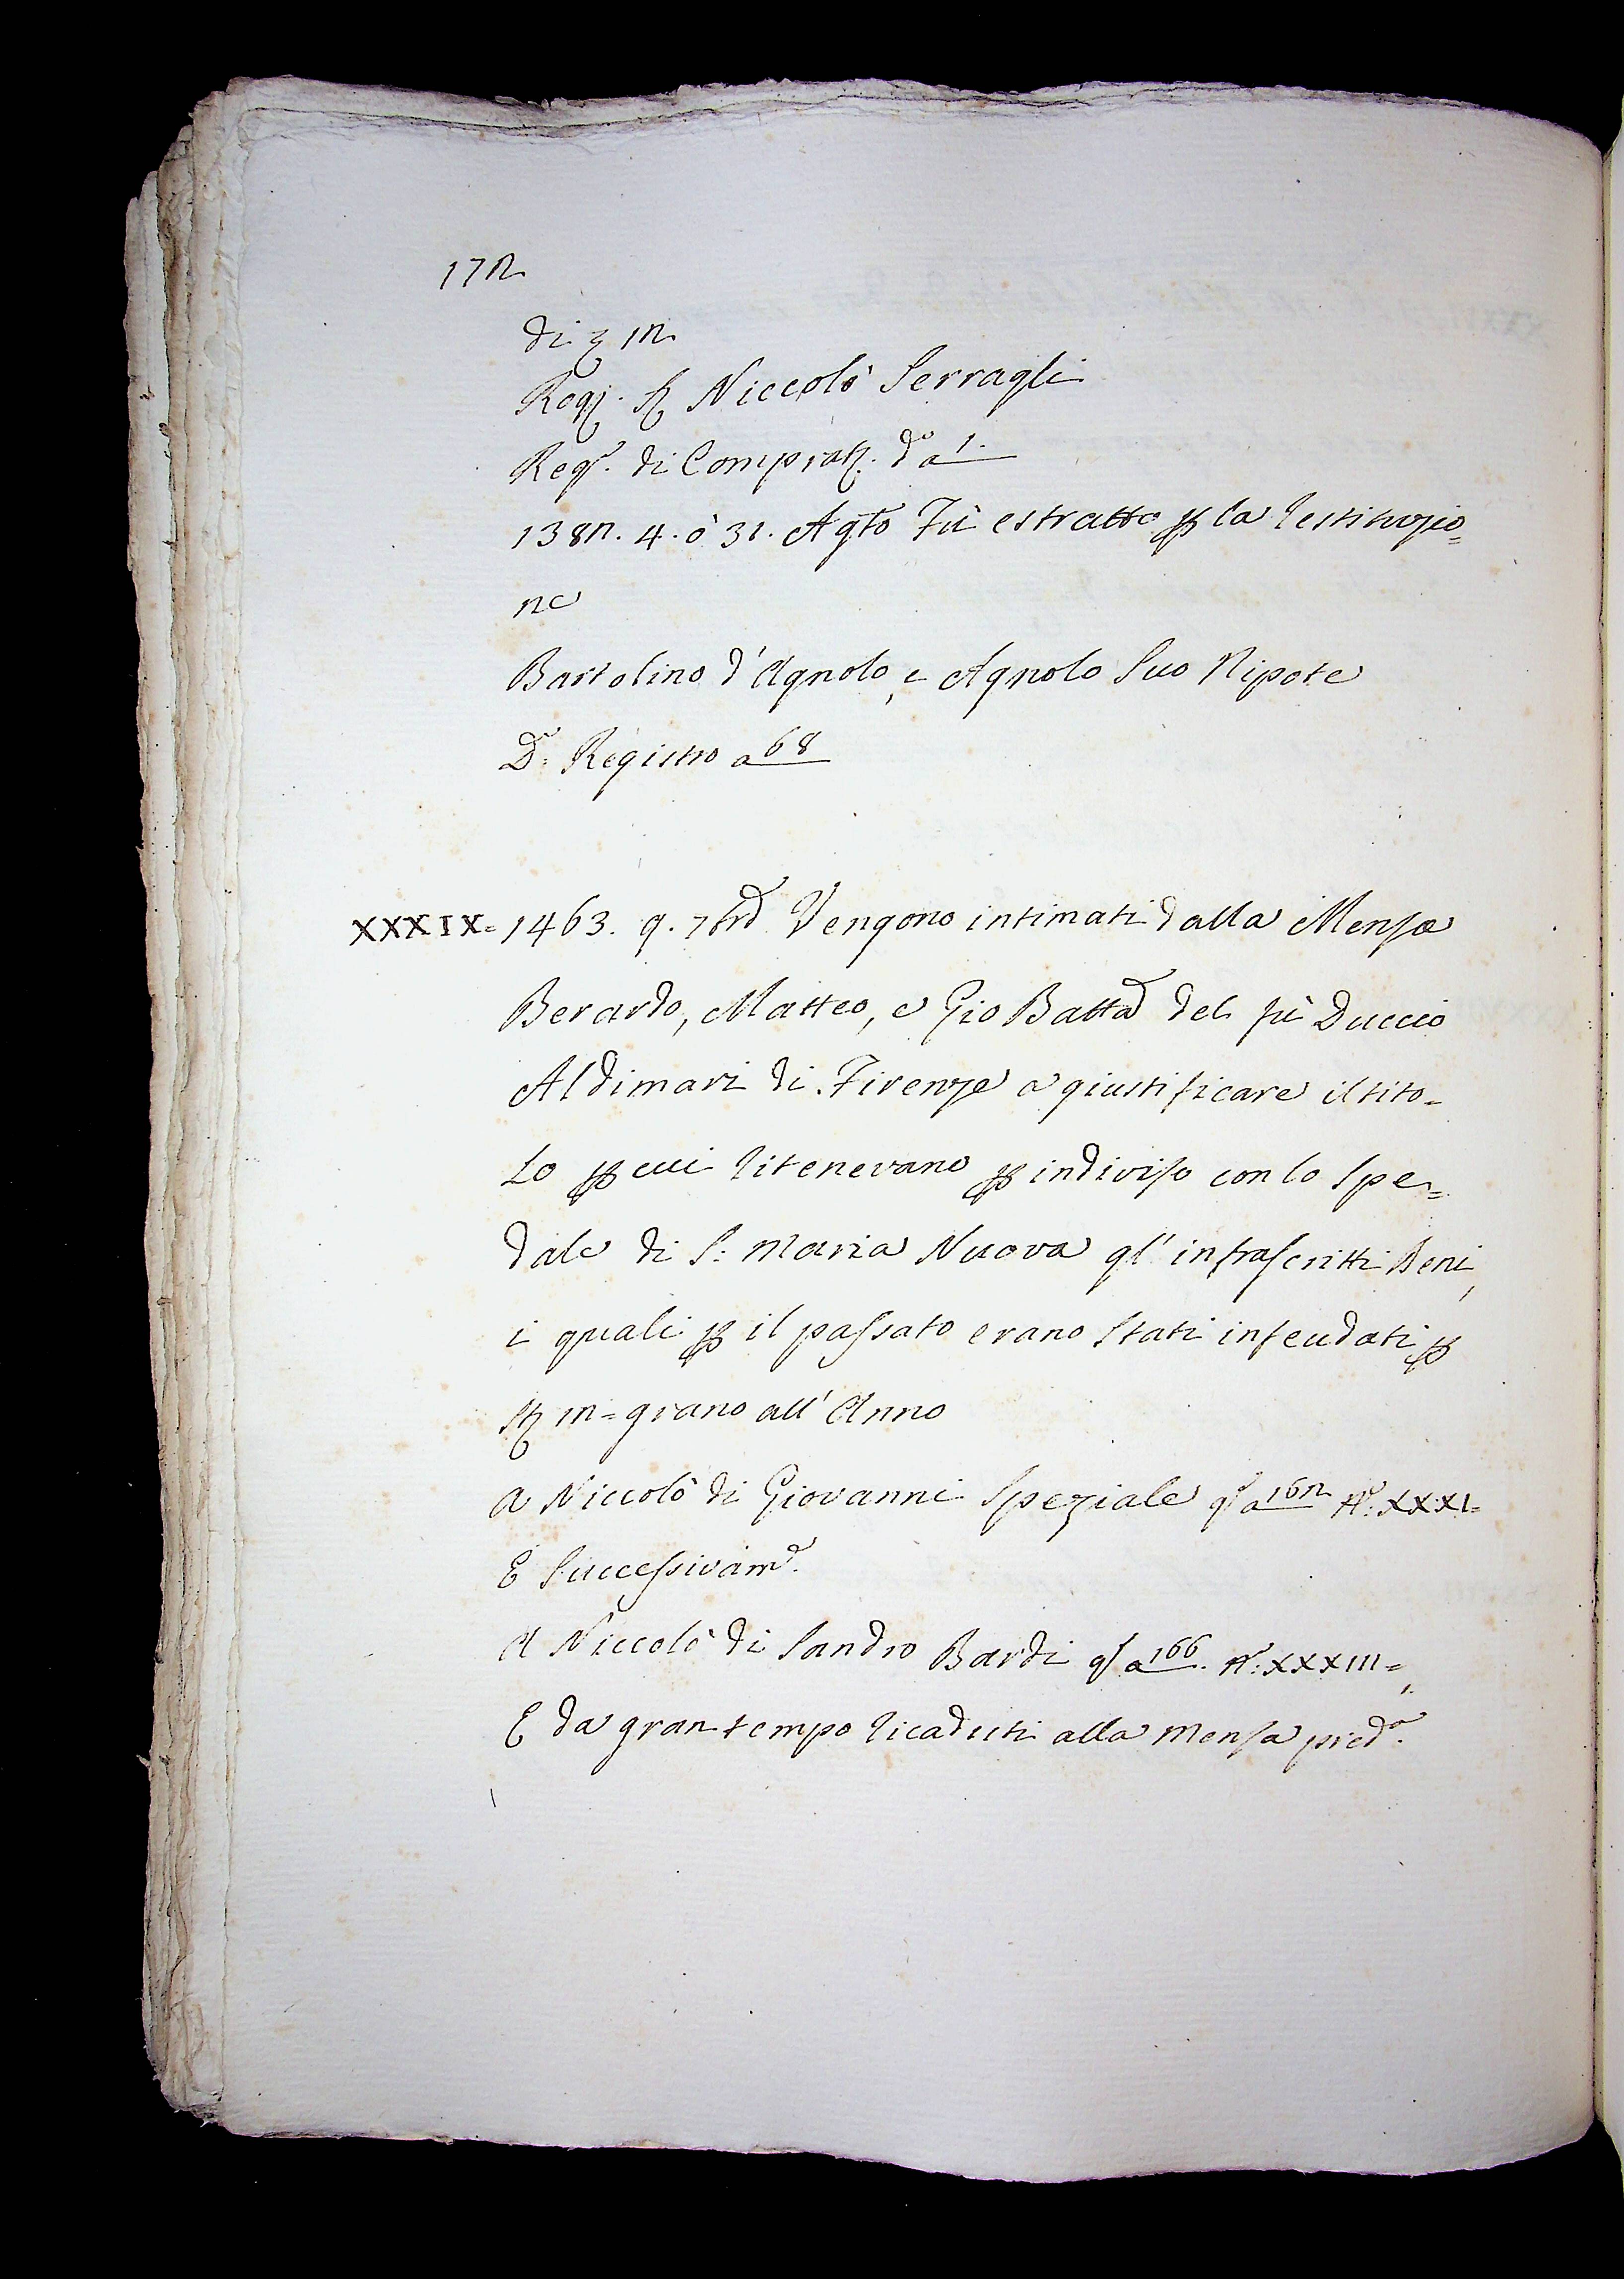 172
di 3 12
Rog. S. Niccolò Serragli
Reg.º di Comprat. d.º a 1.
1382. 4. ò 31. Agto Fù estratto p la restituzio=
ne
Bartolino d'Agnolo, e Agnolo Suo Nipote
D.º Registro a 68
XXXIX= 1463. 9. 7bre Vengono intimati dalla Mensa
Berardo, Matteo, e Gio Batta del fù Duccio
Aldimari di Firenze a giustificare il tito=
lo p cui ritenevano p indiviso con lo Spe=
dale di S: Maria Nuova gl' infrascritti Beni,
i quali p il passato erano stati infeudati p
St 12= grano all'Anno
a Niccolò di Giovanni Speziale qs a 162 Nº. XXXI=
E Successivamᵉ.
A Niccolò di Sandro Bardi qs a 166. Nº: XXXIII=,
E da gran tempo ricaduti alla Mensa predª.